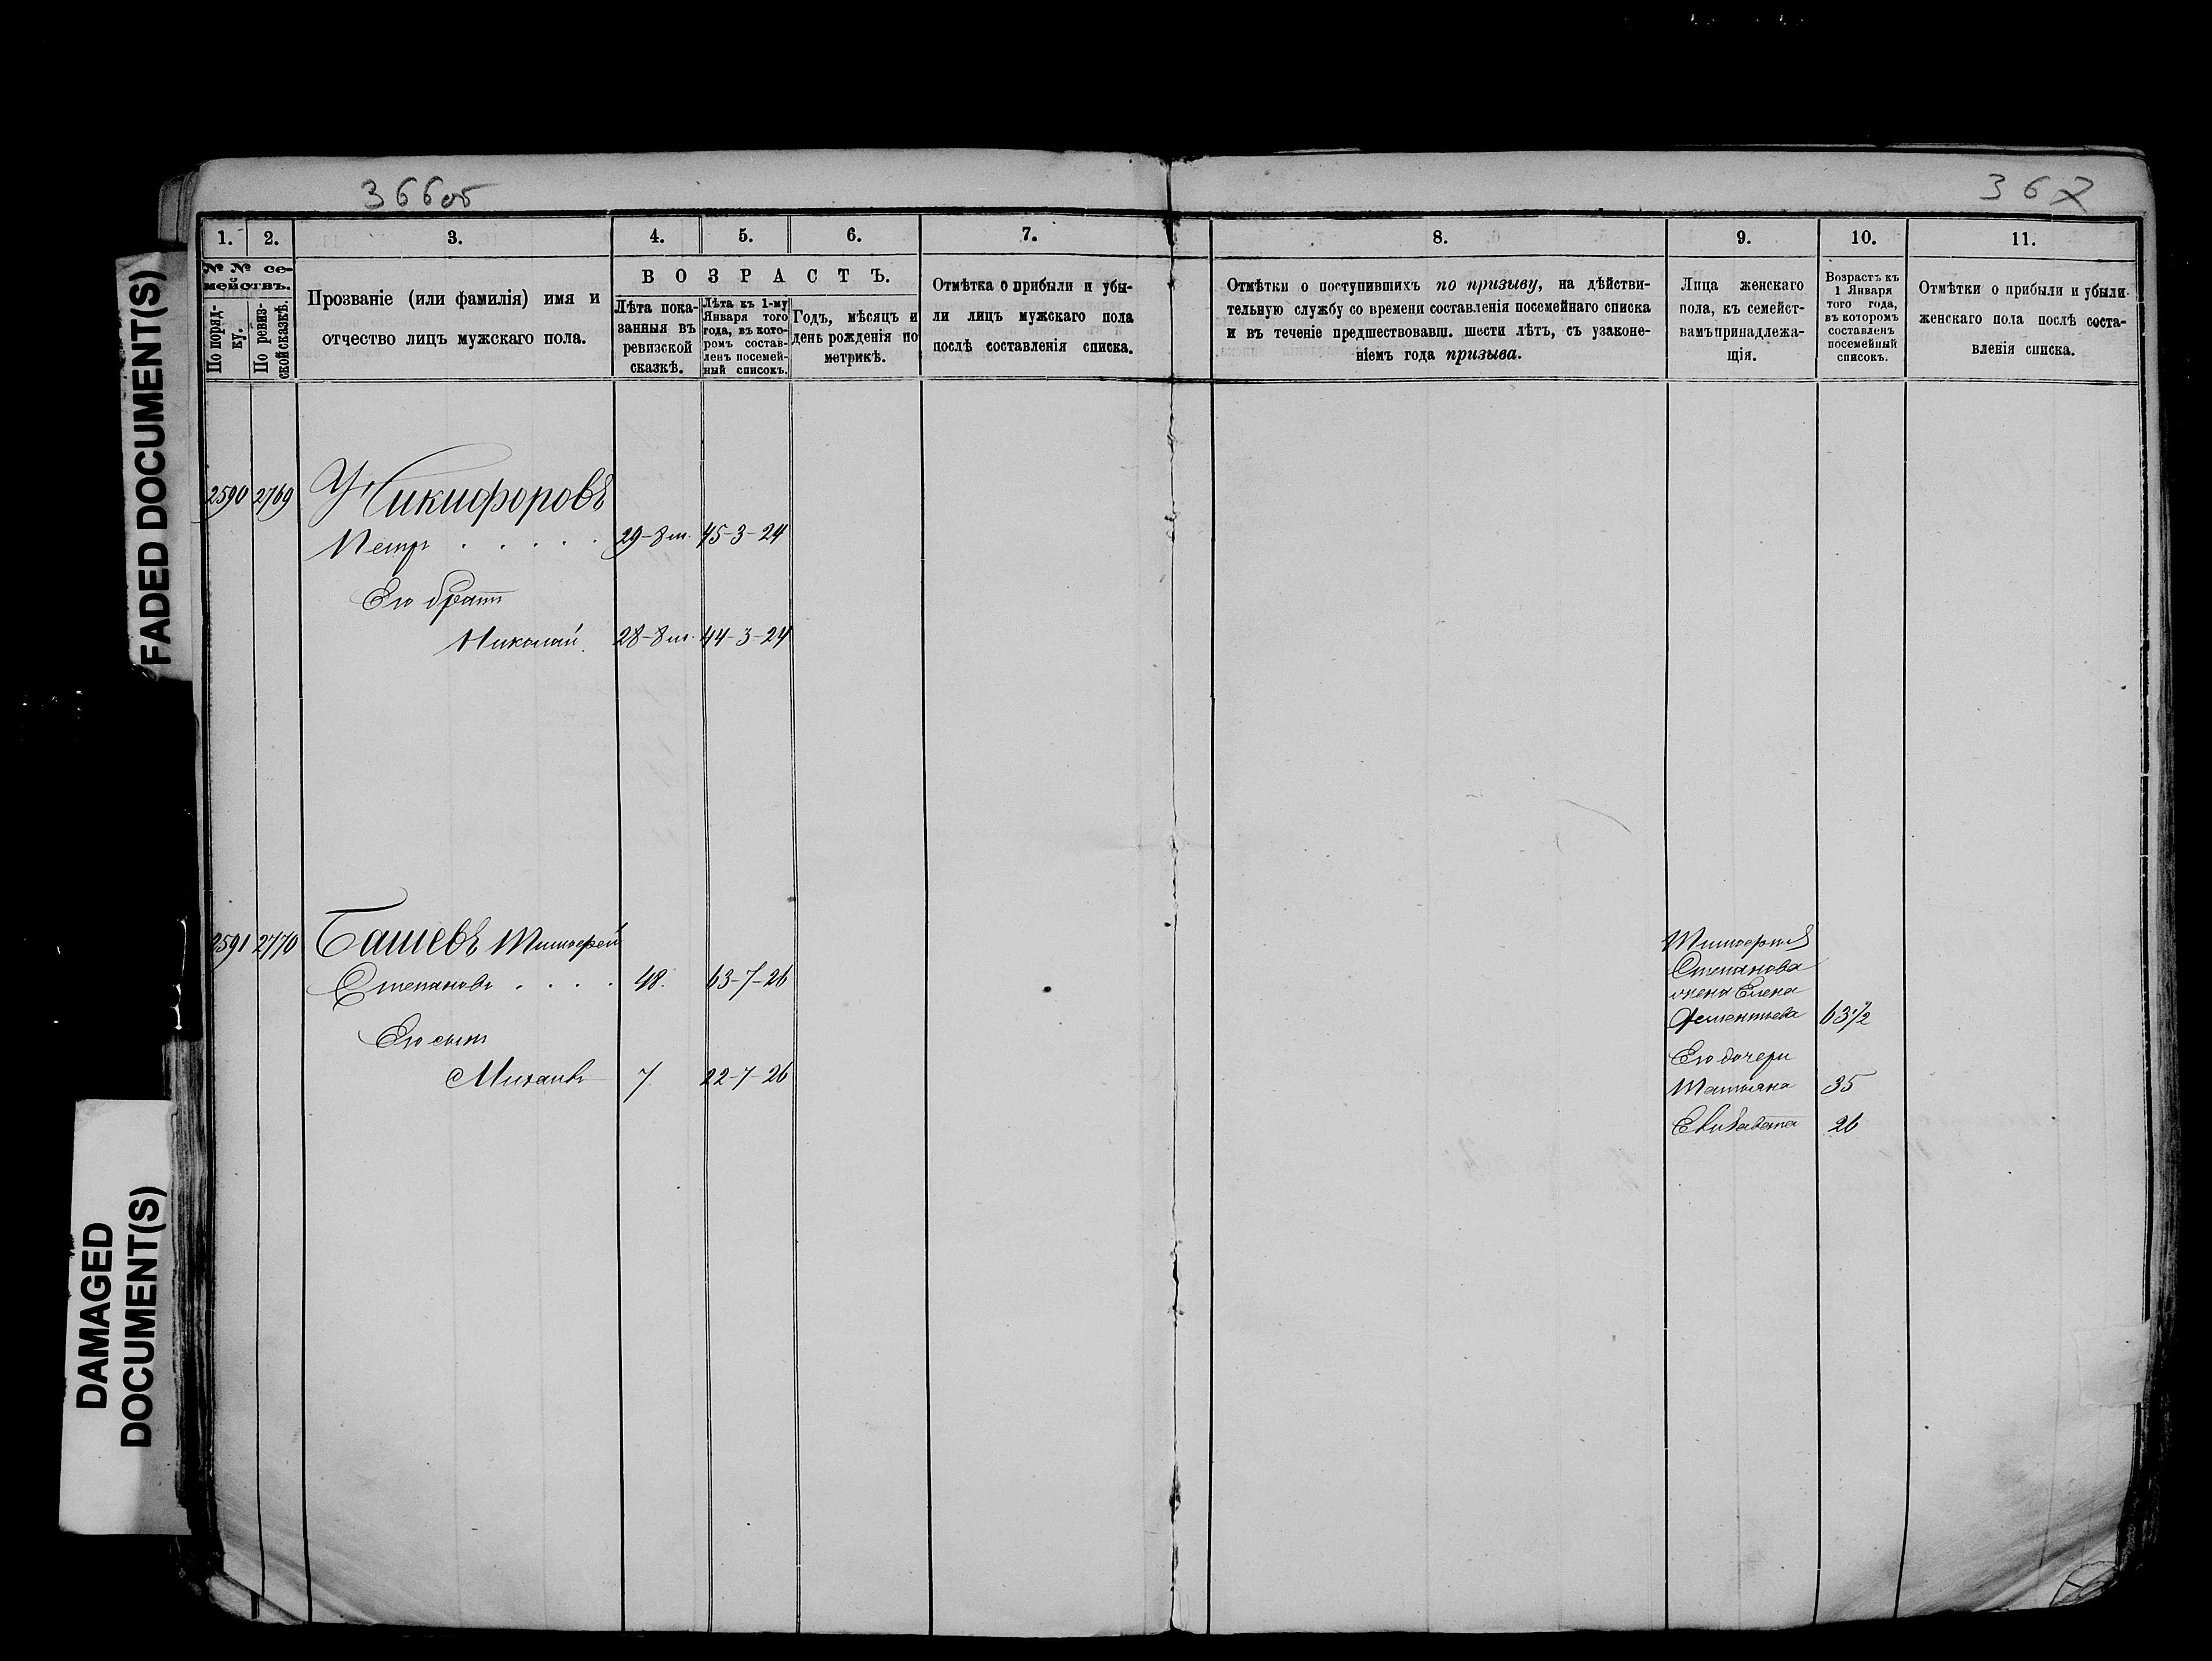 366об
367
FADED DOCUMENT(S)
DAMAGED
DOCUMENT(S)
1.
2.
3.
4.
5.
6.
7.
8.
9.
10.
11.
№ № се-
мействъ.
По поряд-
ку.
По ревиз-
ской сказкѣ.
Прозваніе (или фамилія) имя и
отчество лицъ мужскаго пола.
ВОЗРАСТЪ.
Лѣта пока-
занныя въ
ревизской
сказкѣ.
Лѣта къ 1-му
Января того
года, въ кото-
ромъ состав-
ленъ посемей-
ный списокъ.
Годъ, мѣсяцъ и
день рожденія по
метрикѣ.
Отмѣтка о прибыли и убы-
ли лицъ мужскаго пола
послѣ составленія списка.
Отмѣтки о поступившихъ по призыву, на дѣйстви-
тельную службу со времени составленія посемейнаго списка
и въ теченіе предшествовавш. шести лѣтъ, съ узаконе-
ніемъ года призыва.
Лица женскаго
пола, къ семейст-
вамъ принадлежа-
щія.
Возрастъ къ
1 Января
того года,
въ которомъ
составленъ
посемейный
списокъ.
Отмѣтки о прибыли и убыли
женскаго пола послѣ соста-
вленія списка.
2590 2769 Никифоровъ
Петръ . . . . . 29-8 м. 45-3-24
Его братъ
Николай. 28-8 м. 44-3-24
2591 2770 Башевъ Тимофей
Степановъ . . . . 48. 63-7-26
Его сынъ
Михаилъ 7. 22-7-26
Тимофея
Степанова
жена Елена
Дементьева 63½
Его дочери
Татьяна 35
Елизавета 26